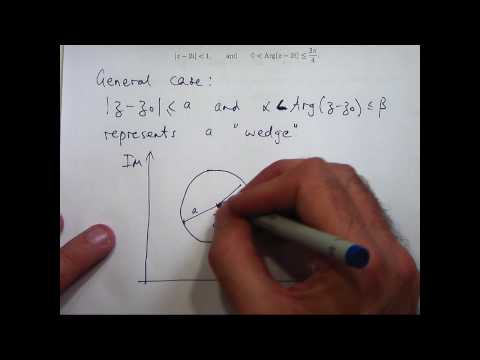 |z − 2i| < 1, and 0 < Arg(z − 2i) ≤ 3π/4.
General case:
|z-z₀| ≤ a and α < Arg(z-z₀) ≤ β
represents a "wedge"
Im
a